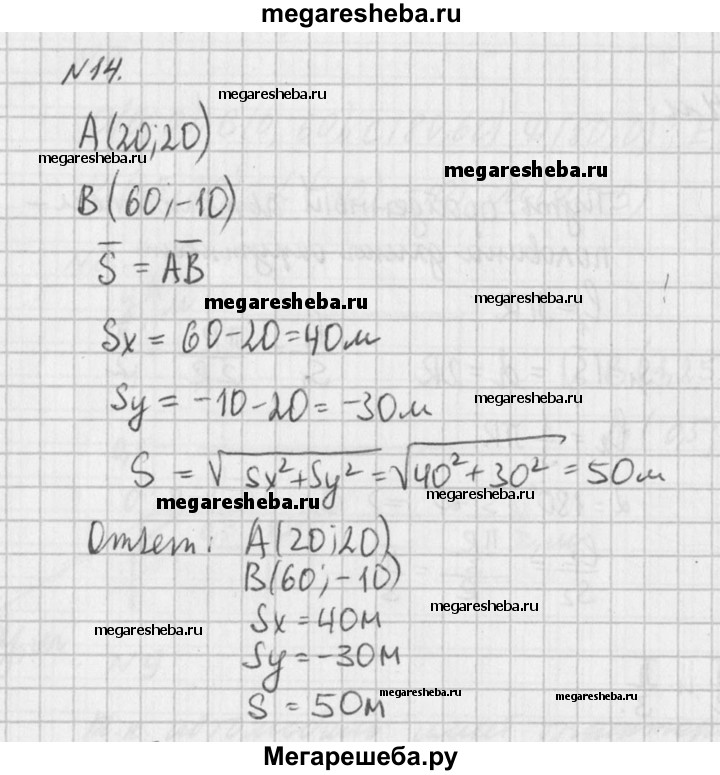 megaresheba.ru
№14.
megaresheba.ru
A(20;20)
megaresheba.ru
megaresheba.ru
B(60;-10)
S̅ = A̅B̅
megaresheba.ru
megaresheba.ru
Sx = 60-20=40м
Sy = -10-20= -30м
megaresheba.ru
S = √Sx²+Sy² = √40²+30² = 50м
megaresheba.ru
megaresheba.ru
Ответ: A(20;20)
B(60;-10)
megaresheba.ru
Sx = 40м
megaresheba.ru
Sy = -30м
S = 50м
megaresheba.ru
megaresheba.ru
Мегарешеба.ру